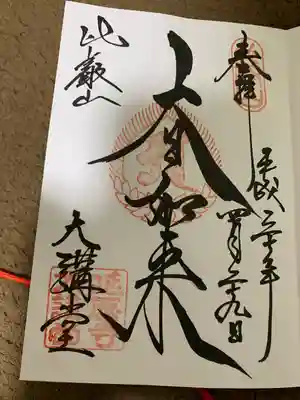 奉拝
平成三十年
四月二十九日
大日如来
比叡山
大講堂